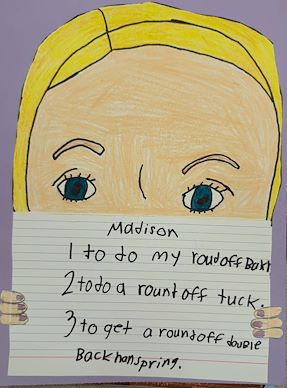 Madison
1 to do my roudoff
2 to do a rount off tuck.
3 to get a roundoff double
Back hanspring.